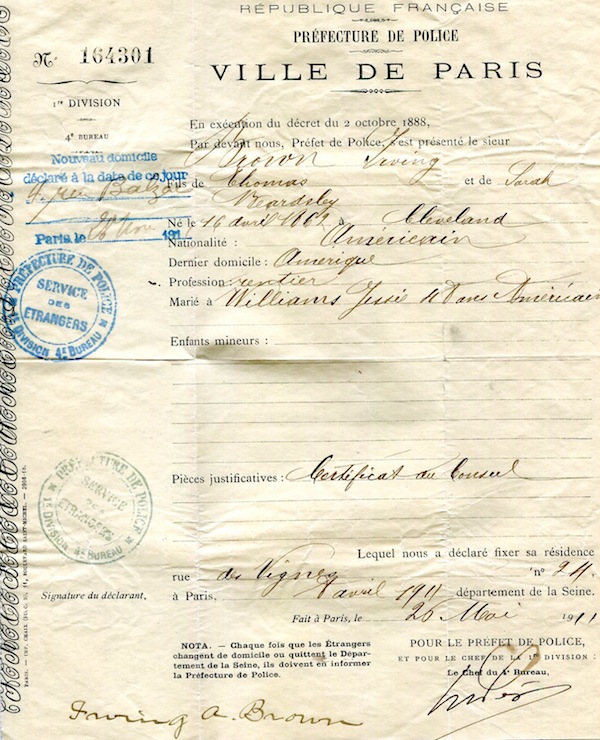 RÉPUBLIQUE FRANÇAISE
PRÉFECTURE DE POLICE
VILLE DE PARIS
N° 164301
1re DIVISION
4e BUREAU
Nouveau domicile
déclaré à la date de ce jour
Paris, le 191
PRÉFECTURE DE POLICE
SERVICE
DES
ÉTRANGERS
1e DIVISION 4E BUREAU
En exécution du décret du 2 octobre 1888,
Par devant nous, Préfet de Police, s'est présenté le sieur
Brown Irving
Fils de Thomas et de Sarah
Né le 16 avril 1862 à Cleveland
Nationalité : Américain
Dernier domicile : Amerique
Profession : rentier
Marié à Williams Jessie
Enfants mineurs :
PRÉFECTURE DE POLICE
SERVICE
DES
ÉTRANGERS
1e DIVISION 4E BUREAU
Pièces justificatives : Certificat du Consul
Lequel nous a déclaré fixer sa résidence
rue des Vignes n° 24
à Paris, avril 1911 département de la Seine.
Fait à Paris, le 26 Mai 1911
Signature du déclarant,
NOTA. — Chaque fois que les Étrangers
changent de domicile ou quittent le Dépar-
tement de la Seine, ils doivent en informer
la Préfecture de Police.
POUR LE PRÉFET DE POLICE,
ET POUR LE CHEF DE LA 1re DIVISION :
Le Chef du 4e Bureau,
Irving A. Brown